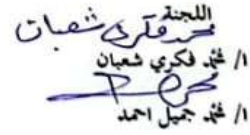 اللجنة
محمد فكري شعبان
١/ محمد فكري شعبان
١/ محمد جميل احمد